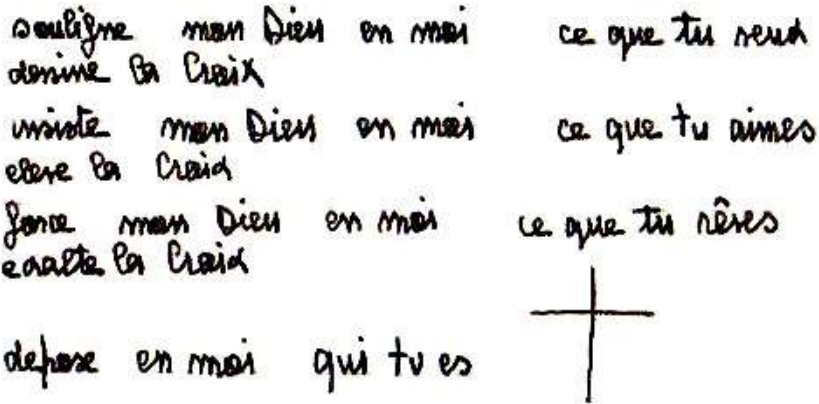 souligne mon Dieu en moi ce que tu veux
dessine la Croix
insiste mon Dieu en moi ce que tu aimes
eleve la Croix
force mon Dieu en moi ce que tu rêves
exalte la Croix
depose en moi qui tu es